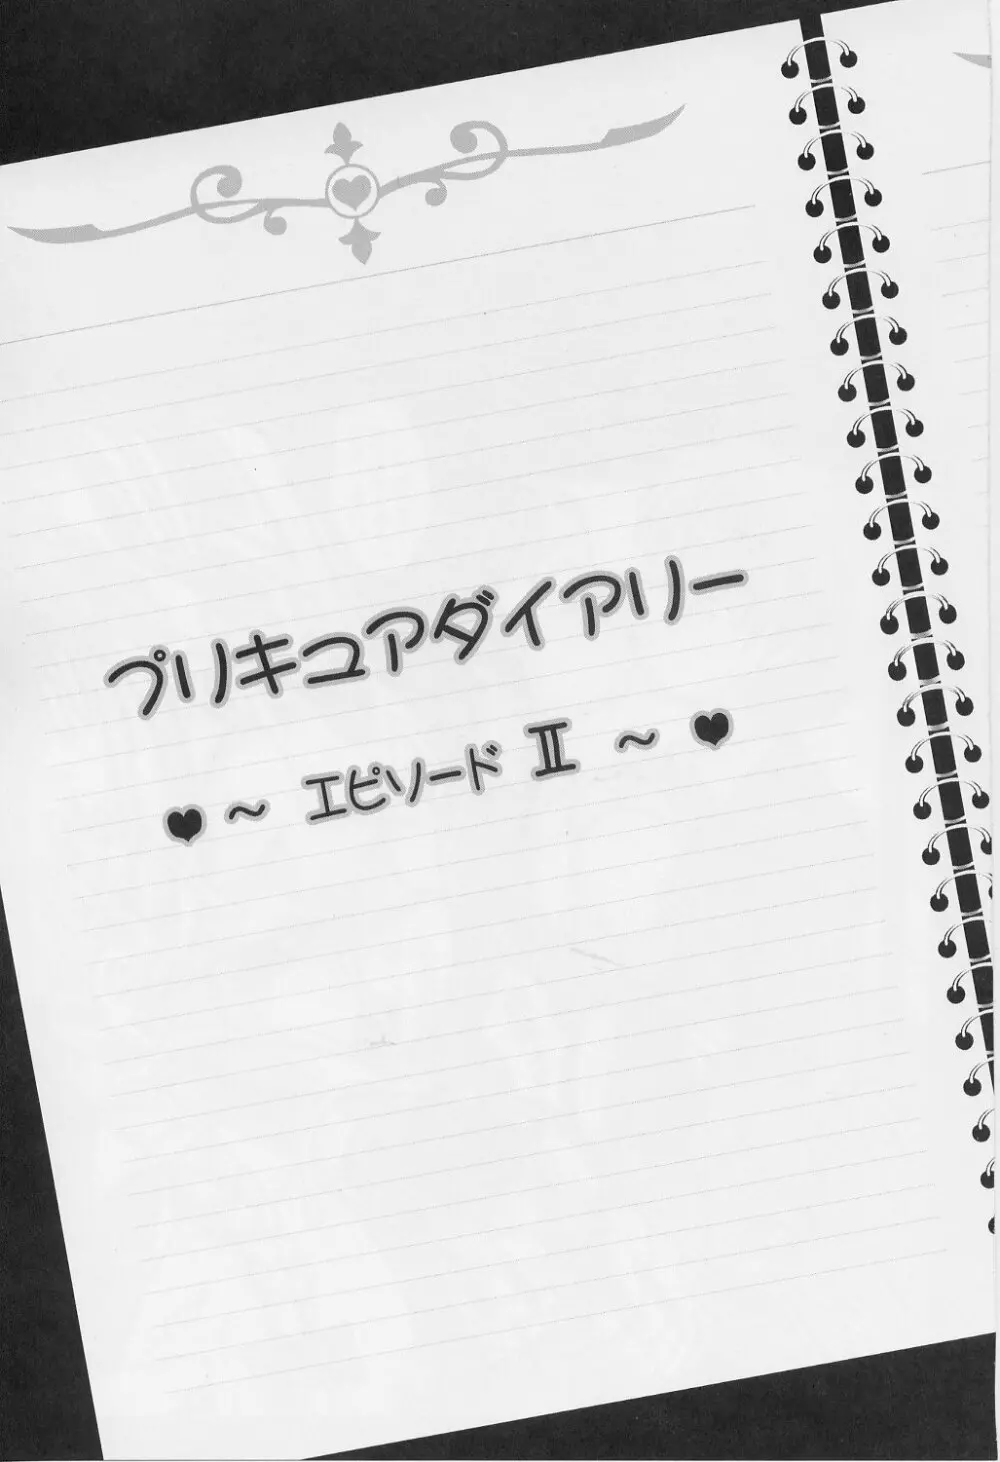 プリキュアダイアリー
♥ ～ エピソード Ⅲ ～ ♥